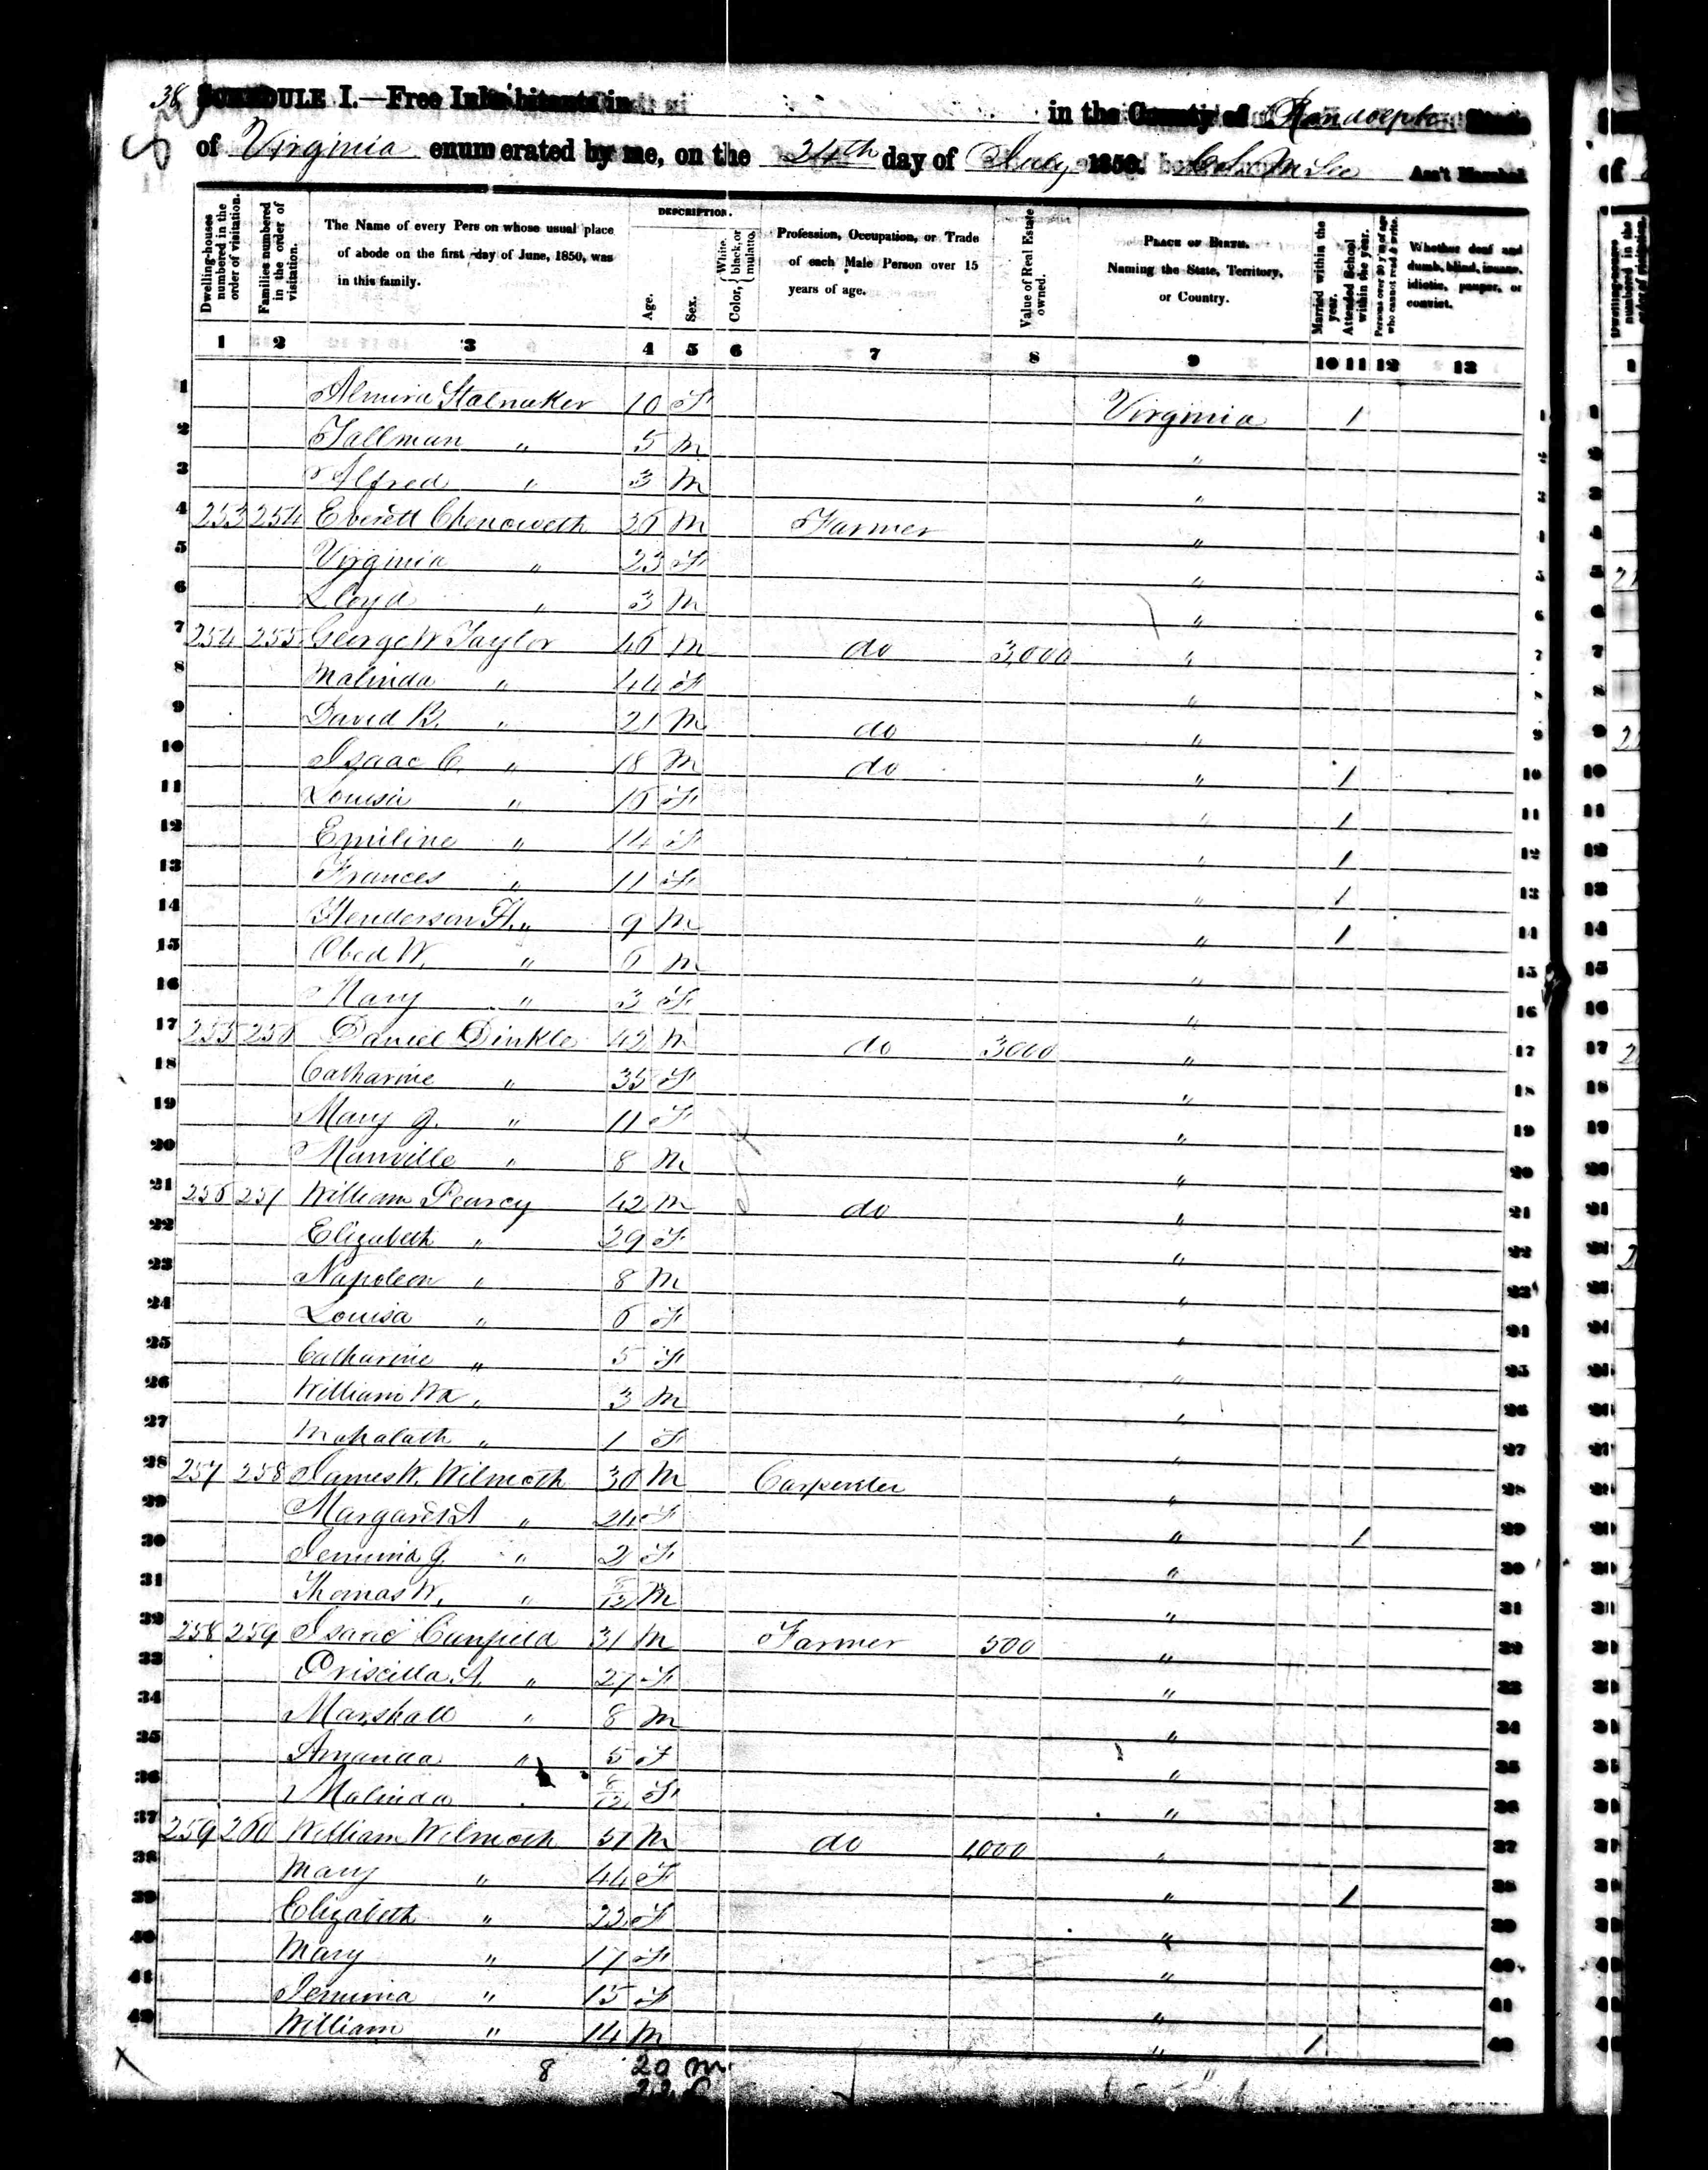 38 SCHEDULE I.—Free Inhabitants in in the County of Randolph State
of Virginia enumerated by me, on the 24th day of July 1850. Ass't Marshal
Dwelling-houses numbered in the order of visitation.
Families numbered in the order of visitation.
The Name of every Person whose usual place of abode on the first day of June, 1850, was in this family.
DESCRIPTION.
Age.
Sex.
Color, White, black, or mulatto.
Profession, Occupation, or Trade of each Male Person over 15 years of age.
Value of Real Estate owned.
PLACE OF BIRTH. Naming the State, Territory, or Country.
Married within the year.
Attended School within the year.
Persons over 20 y'rs of age who cannot read & write.
Whether deaf and dumb, blind, insane, idiotic, pauper, or convict.
1 2 3 4 5 6 7 8 9 10 11 12 13
1 Almira Stalnaker 10 F Virginia 1 1
2 Tallman " 5 M " 2
3 Alfred " 3 M " 3
4 253 254 Everett Chenoweth 26 M Farmer " 4
5 Virginia " 23 F " 5
6 Lloyd " 3 M " 6
7 254 255 George W Taylor 46 M do 3,000 " 7
8 Malinda " 44 F "
9 David B. " 21 M do " 9
10 Isaac C. " 18 M do " 1 10
11 Louisa " 16 F " 1 11
12 Emiline " 14 F " 1 12
13 Frances " 11 F " 1 13
14 Henderson H. " 9 M " 1 14
15 Obed W. " 6 M " 15
16 Mary " 3 F " 16
17 255 256 Daniel Dinkle 42 M do 3000 " 17
18 Catharine " 35 F " 18
19 Mary J. " 11 F " 19
20 Manville " 8 M " 20
21 256 257 William Pearcy 42 M do " 21
22 Elizabeth " 29 F " 22
23 Napoleon " 8 M " 23
24 Louisa " 6 F " 24
25 Catharine " 5 F " 25
26 William " 3 M " 26
27 Mahalath " 1 F " 27
28 257 258 James W. Wilmoth 30 M Carpenter " 28
29 Margaret A " 24 F " 1 29
30 Jemima J. " 2 F " 30
31 Thomas W. " M " 31
32 258 259 Isaac Canfield 31 M Farmer 500 " 32
33 Priscilla A. " 27 F " 33
34 Marshall " 8 M " 34
35 Amanda " 5 F " 35
36 Malinda F " 36
37 259 260 William Wilmoth 51 M do 1,000 " 37
38 Mary " 44 F " 1 38
39 Elizabeth " 22 F " 39
40 Mary " 17 F " 40
41 Jemima " 15 F " 41
42 William " 14 M " 1 42
8 20 m
22 f